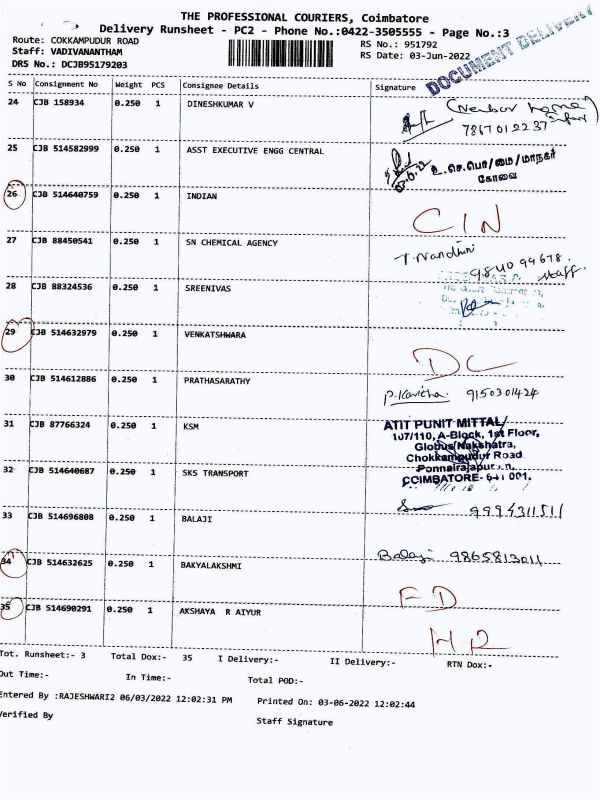 THE PROFESSIONAL COURIERS, Coimbatore
Delivery Runsheet - PC2 - Phone No.:0422-3505555 - Page No.:3
Route: COKKAMPUDUR ROAD
RS No.: 951792
Staff: VADIVANANTHAM
RS Date: 03-Jun-2022
DRS No.: DCJB95179203
DOCUMENT DELIVERY
S No Consignment No Weight PCS Consignee Details Signature
24 CJB 158934 0.250 1 DINESHKUMAR V
7867012237
25 CJB 514582999 0.250 1 ASST EXECUTIVE ENGG CENTRAL
உ.செ.பொ/மை/மாநகர்
கோவை
26 CJB 514640759 0.250 1 INDIAN
CIN
27 CJB 88450541 0.250 1 SN CHEMICAL AGENCY
T.Nandhini
9840 99678.
Staff.
28 CJB 88324536 0.250 1 SREENIVAS
29 CJB 514632979 0.250 1 VENKATSHWARA
DC
30 CJB 514612886 0.250 1 PRATHASARATHY
P.Kavitha 9150301424
31 CJB 87766324 0.250 1 KSM
ATIT PUNIT MITTAL/
107/110, A-Block, 1st Floor,
Globus/Nakshatra,
Chokkampudur Road
Ponnairajapuram,
COIMBATORE- 641 001.
32 CJB 514640687 0.250 1 SKS TRANSPORT
9994311511
33 CJB 514696808 0.250 1 BALAJI
Balaji 9865813011
34 CJB 514632625 0.250 1 BAKYALAKSHMI
FD
35 CJB 514690291 0.250 1 AKSHAYA R AIYUR
HR
Tot. Runsheet:- 3 Total Dox:- 35 I Delivery:- II Delivery:- RTN Dox:-
Out Time:- In Time:- Total POD:-
Entered By :RAJESHWARI2 06/03/2022 12:02:31 PM Printed On: 03-06-2022 12:02:44
Verified By Staff Signature